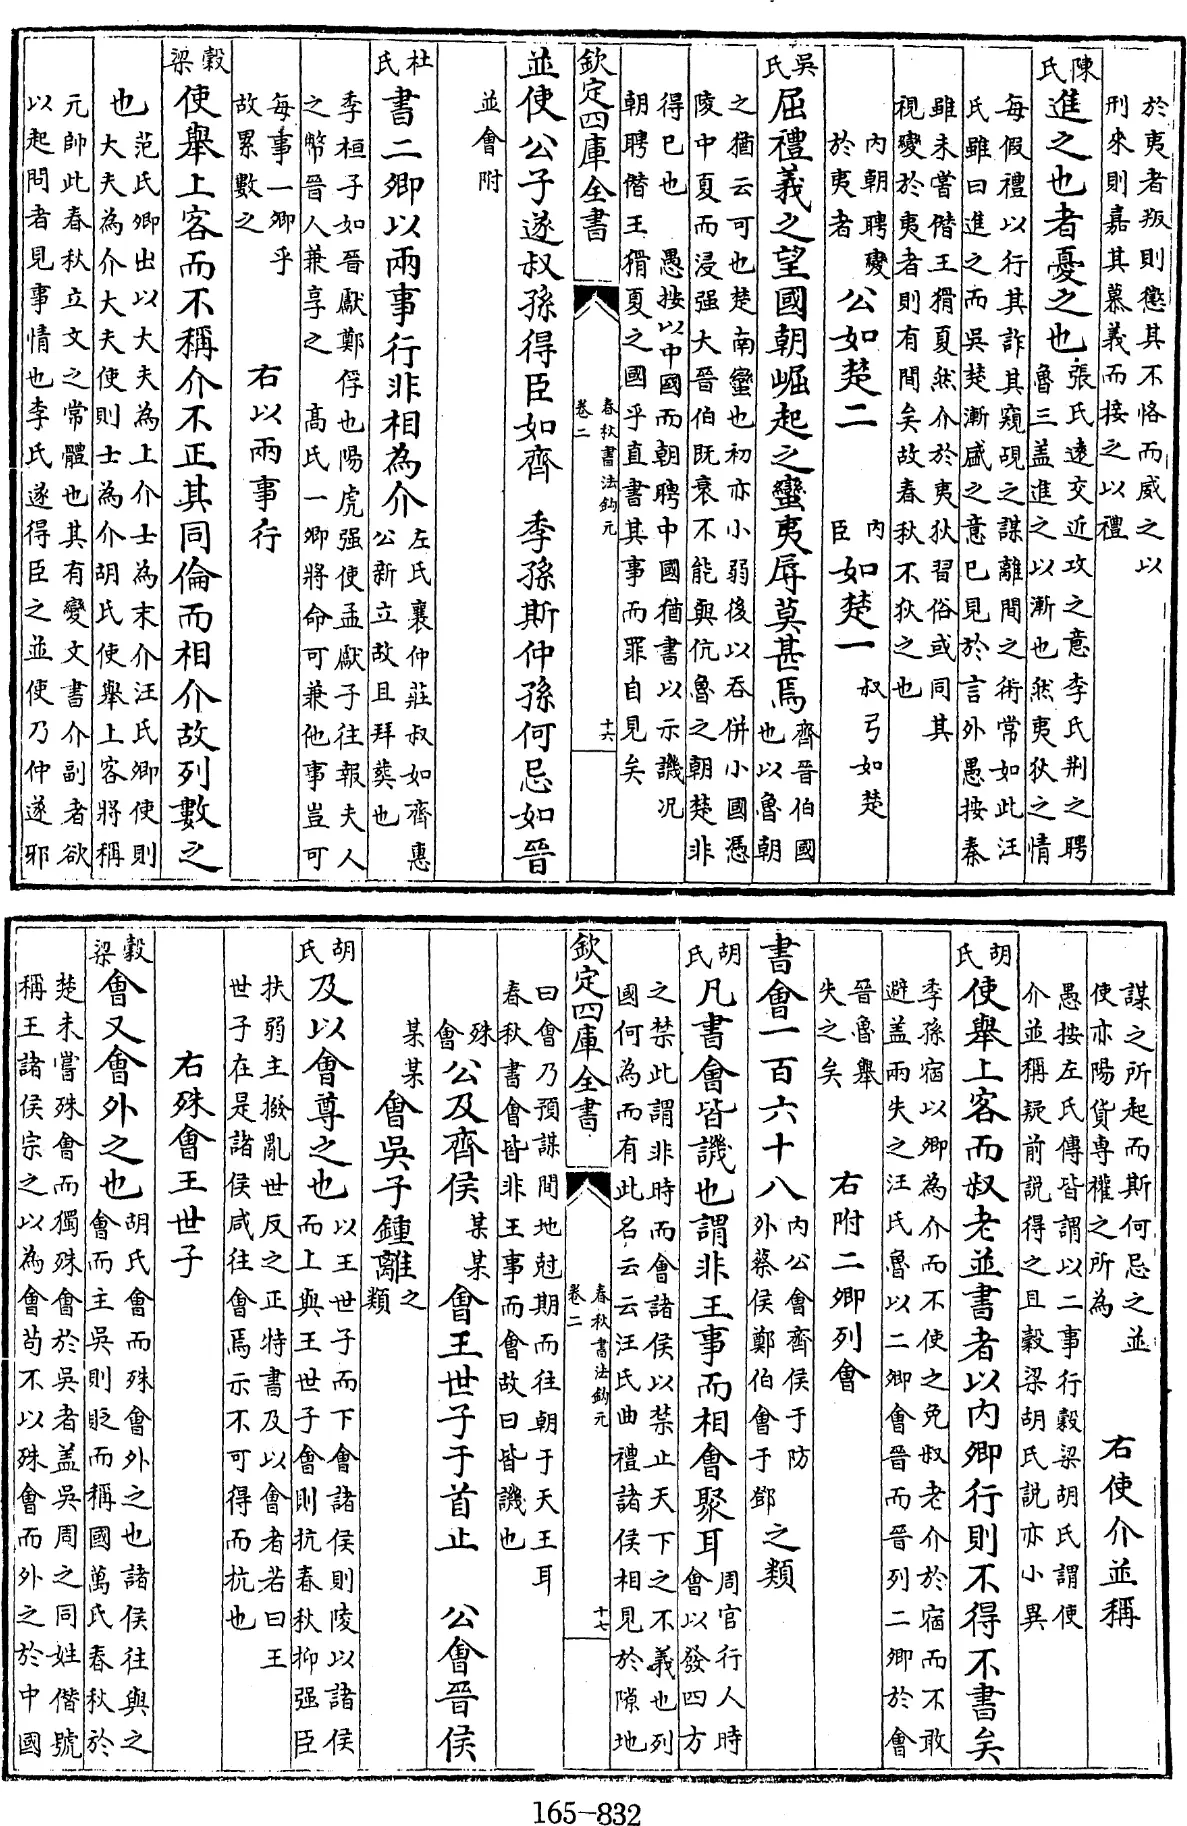 於夷者叛則懲其不恪而威之以
刑來則嘉其慕義而接之以禮
陳氏進之也者憂之也張氏遠交近攻之意李氏荆之聘
魯三盖進之以漸也然夷狄之情
每假禮以行其詐其窺覘之謀離間之術常如此汪
氏雖曰進之而吳楚漸盛之意已見於言外愚按秦
雖未嘗僭王猾夏然介於夷狄習俗或同其
視變於夷者則有間矣故春秋不狄之也
内朝聘變於夷者 公如楚二 内臣如楚一 叔弓如楚
吳氏屈禮義之望國朝崛起之蠻夷辱莫甚焉齊晉伯國
也以魯朝
之猶云可也楚南蠻也初亦小弱後以吞併小國憑
陵中夏而浸强大晉伯既衰不能與伉魯之朝楚非
得已也 愚按以中國而朝聘中國猶書以示譏况
朝聘僭王猾夏之國乎直書其事而罪自見矣
欽定四庫全書 春秋書法鈎元 卷二 十六
並使公子遂叔孫得臣如齊 季孫斯仲孫何忌如晉
並會附
杜氏書二卿以兩事行非相為介左氏襄仲莊叔如齊惠
公新立故且拜葬也
季桓子如晉獻鄭俘也陽虎强使孟獻子往報夫人
之幣晉人兼享之 高氏一卿將命可兼他事豈可
每事一卿乎
故累數之 右以兩事行
穀梁使舉上客而不稱介不正其同倫而相介故列數之
也范氏卿出以大夫為上介士為末介汪氏卿使則
大夫為介大夫使則士為介胡氏使舉上客將稱
元帥此春秋立文之常體也其有變文書介副者欲
以起問者見事情也李氏遂得臣之並使乃仲遂耶
謀之所起而斯何忌之並
使亦陽貨專權之所為 右使介並稱
愚按左氏傳皆謂以二事行穀梁胡氏謂使
介並稱疑前說得之且穀梁胡氏說亦小異
胡氏使舉上客而叔老並書者以内卿行則不得不書矣
季孫宿以卿為介而不使之免叔老介於宿而不敢
避盖兩失之汪氏魯以二卿會晉而晉列二卿於會
晉魯舉
失之矣 右附二卿列會
書會一百六十八内公會齊侯于防
外蔡侯鄭伯會于鄧之類
胡氏凡書會皆譏也謂非王事而相會聚耳周官行人時
會以發四方
之禁此謂非時而會諸侯以禁止天下之不義也列
國何為而有此名云云汪氏曲禮諸侯相見於隙地
欽定四庫全書 春秋書法鈎元 卷二 十七
曰會乃預謀間地尅期而往朝于天王耳
春秋書會皆非王事而會故曰皆譏也
殊會公及齊侯某某會王世子于首止 公會晉侯
某某會吳子鍾離之類
胡氏及以會尊之也以王世子而下會諸侯則陵以諸侯
而上與王世子會則抗春秋抑强臣
扶弱主撥亂世反之正特書及以會者若曰王
世子在是諸侯咸往會焉示不可得而抗也
右殊會王世子
穀梁會又會外之也胡氏會而殊會外之也諸侯往與之
會而主吳則貶而稱國萬氏春秋於
楚未嘗殊會而獨殊會於吳者盖吳周之同姓僭號
稱王諸侯宗之以為會苟不以殊會而外之於中國
165-832